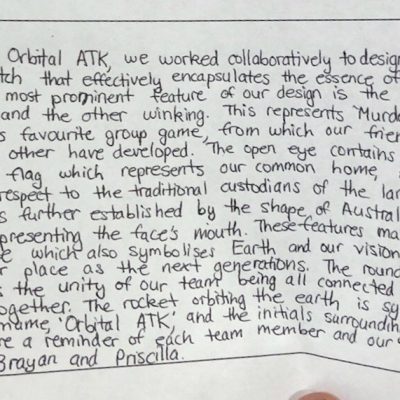 Orbital ATK, we worked collaboratively to design
tch that effectively encapsulates the essence of
most prominent feature of our design is the
and the other winking. This represents 'Murd
s favourite group game, from which our frien
other have developed. The open eye contains
flag which represents our common home,
respect to the traditional custodians of the lan
s further established by the shape of Austral
presenting the face's mouth. These features ma
e which also symbolises Earth and our vision
r place as the next generations. The round
s the unity of our team being all connected
ogether. The rocket orbiting the earth is sy
name, 'Orbital ATK,' and the initials surroundin
re a reminder of each team member and our
Brayan and Priscilla.